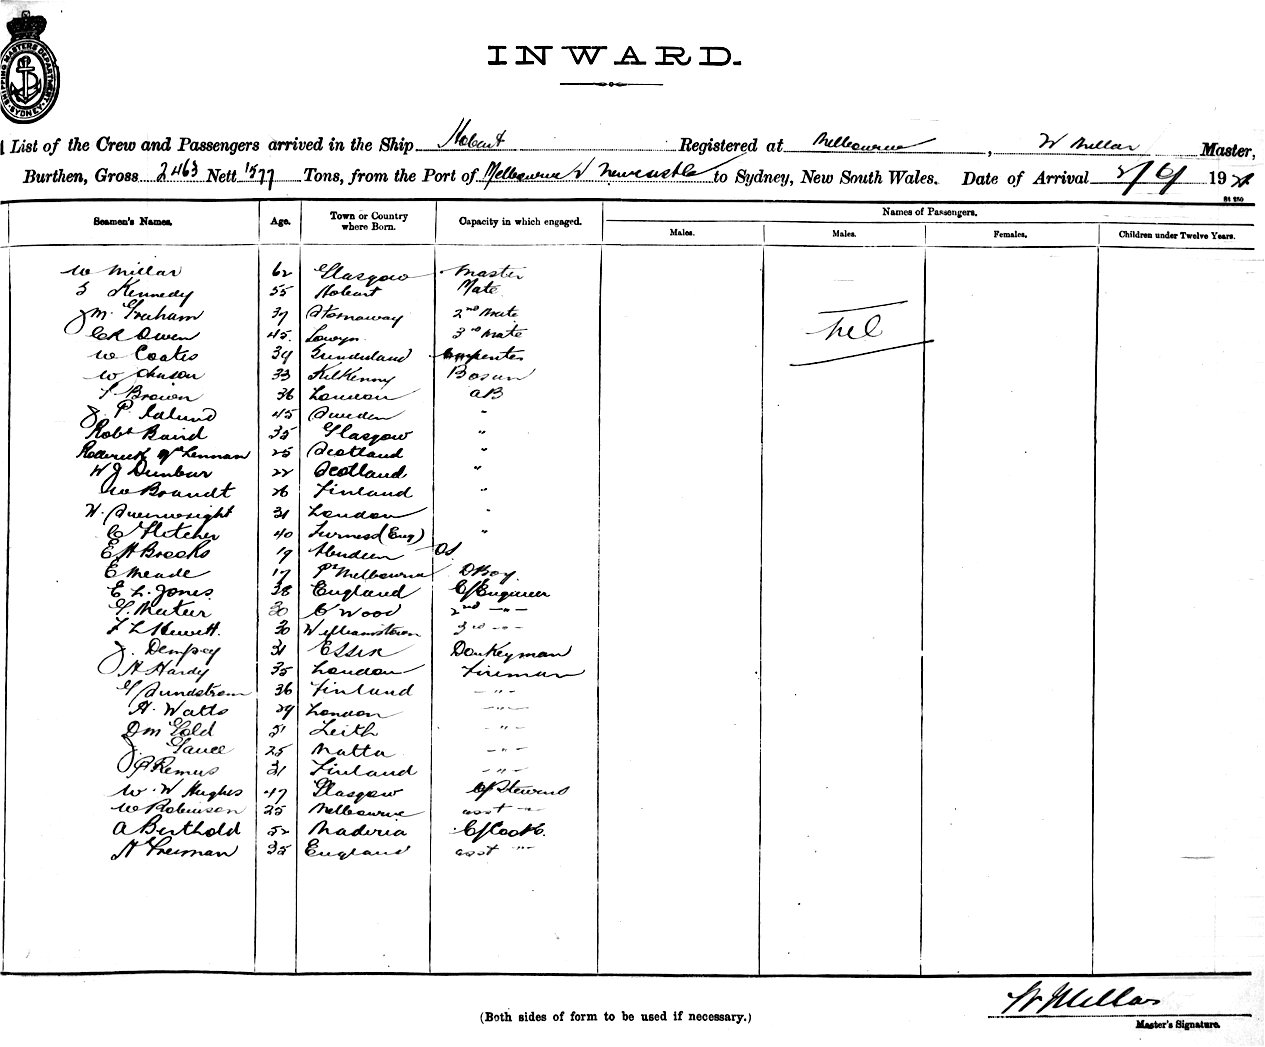 SHIPPING MASTERS DEPARTMENT SYDNEY
INWARD.
List of the Crew and Passengers arrived in the Ship Hobart Registered at Melbourne, W Millar Master,
Burthen, Gross 2463 Nett 1577 Tons, from the Port of Melbourne Newcastle to Sydney, New South Wales. Date of Arrival 2/6/ 192
Seamen's Names. Age. Town or Country where Born. Capacity in which engaged. Names of Passengers.
Males. Males. Females. Children under Twelve Years.
W Millar 62 Glasgow Master
Kennedy 55 Hobart Mate
J M. Graham 37 Stornaway 2nd Mate
Owen 45 3rd Mate
Nil
W Coates 39 Sunderland Carpenter
W 33 Kilkenny Bosun
Brown 36 London AB
J P. Edlund 45 Sweden "
Robt Baird 35 Glasgow "
Roderick McLennan 25 Scotland "
W J Dunbar 22 Scotland "
W Brandt 26 Finland "
W. 31 London "
C Fletcher 40 (Eng) "
E H Brooks 19 Aberdeen OS
E Meade 17 Pt Melbourne D Boy
E L. Jones 38 England C/Engineer
30 C Wood 2nd -"-
F L Hewitt. 30 Williamstown 3rd -"-
J. Dempsey 31 Essex Donkeyman
H Hardy 35 London Fireman
G Sundstrom 36 Finland -"-
H. Watts 29 London -"-
D M Gold 51 Leith -"-
J. Gauci 25 Malta -"-
P Remus 31 Finland -"-
W. W Hughes 47 Glasgow C/Steward
W Robinson 25 Melbourne asst -"-
A Berthold 52 Maderia C/Cook.
H Freeman 35 England asst -"-
W Millar
(Both sides of form to be used if necessary.)
Master's Signature.